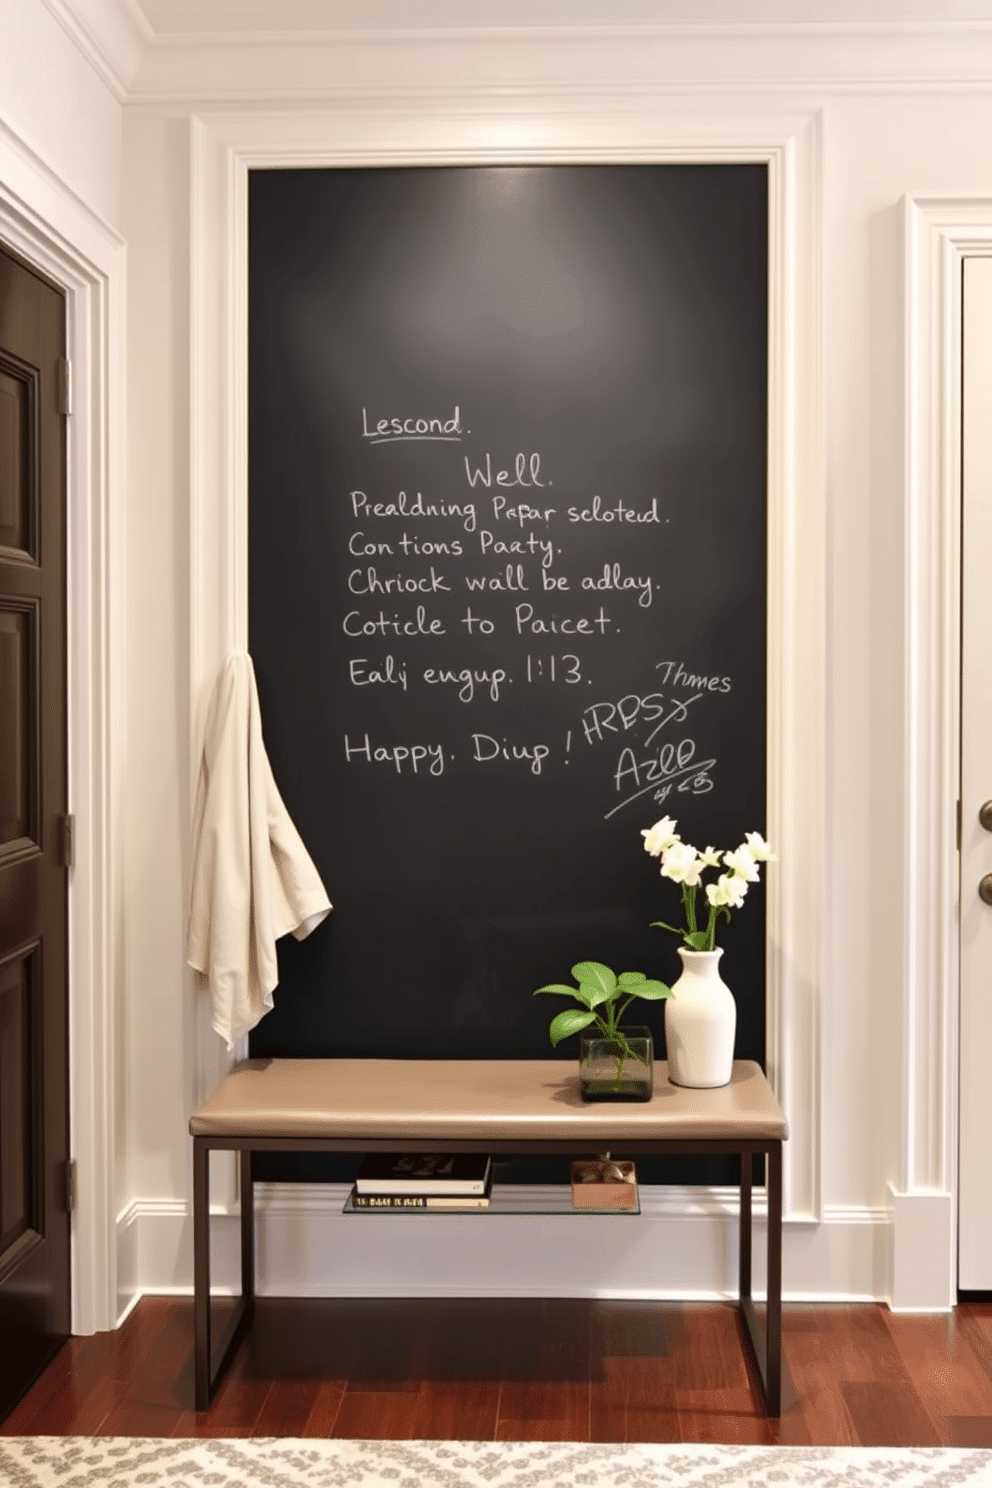 Lescond.
Well.
Prealdning Pepar scloteud.
Contions Paaty.
Chriock wall be adlay.
Coticle to Paicet.
Ealy engup. 1:13.
Thmes
Happy. Diup!
Azle